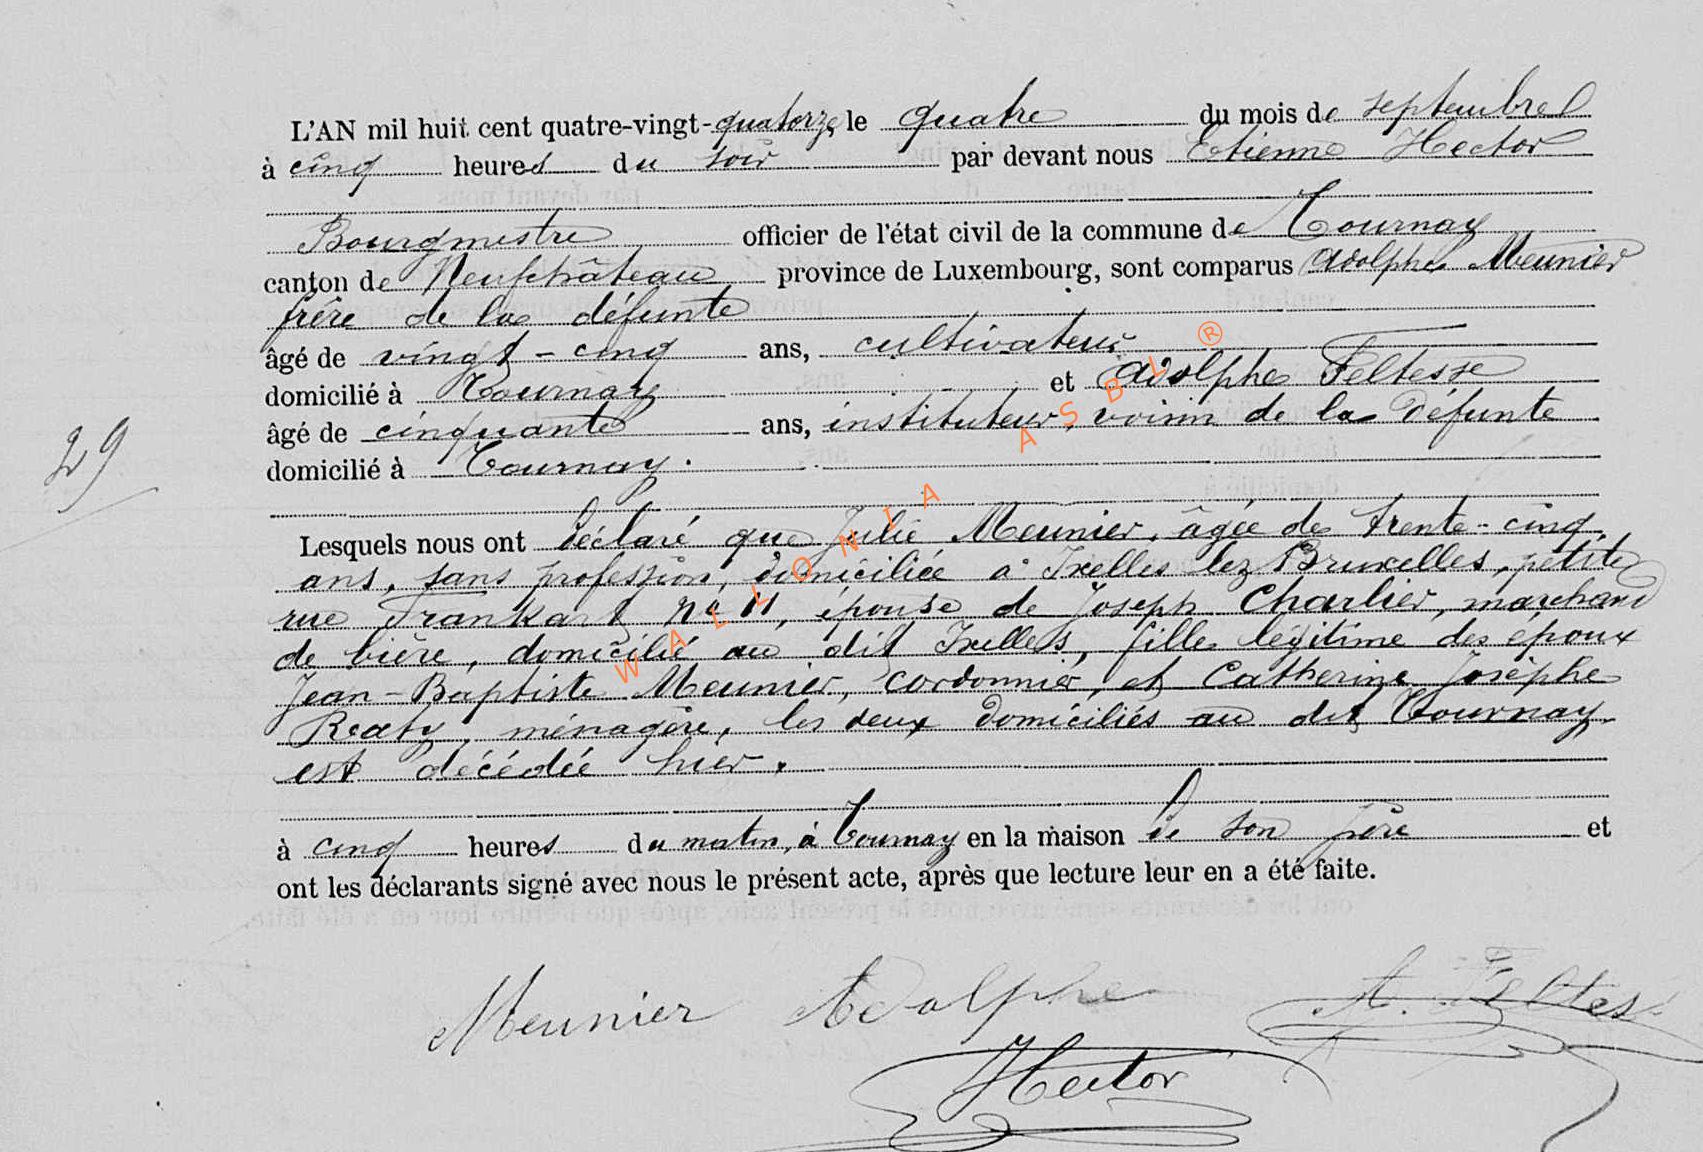 L'AN mil huit cent quatre-vingt-quatorze, le quatre du mois de septembre
à cinq heures du soir par devant nous Etienne Hector
Bourgmestre officier de l'état civil de la commune de Tournay
canton de Neufchâteau province de Luxembourg, sont comparus Adolphe Meunier
frère de la défunte
âgé de vingt-cinq ans, cultivateur
domicilié à Tournay et Adolphe Feltesse
âgé de cinquante ans, instituteur, voisin de la défunte
domicilié à Tournay.
29
Lesquels nous ont déclaré que Julie Meunier, âgée de trente-cinq
ans, sans profession, domiciliée à Ixelles lez Bruxelles, petite
rue Frankart, n° 11, épouse de Joseph Charlier, marchand
de bière, domicilié au dit Ixelles, fille légitime des époux
Jean-Baptiste Meunier, cordonnier, et Catherine Josèphe
Reaty, ménagère, les deux domiciliés au dit Tournay,
est décédée hier,
à cinq heures du matin, à Tournay en la maison de son père et
ont les déclarants signé avec nous le présent acte, après que lecture leur en a été faite.
Meunier Adolphe A. Feltesse
Hector
WALLONIA ASBL ®